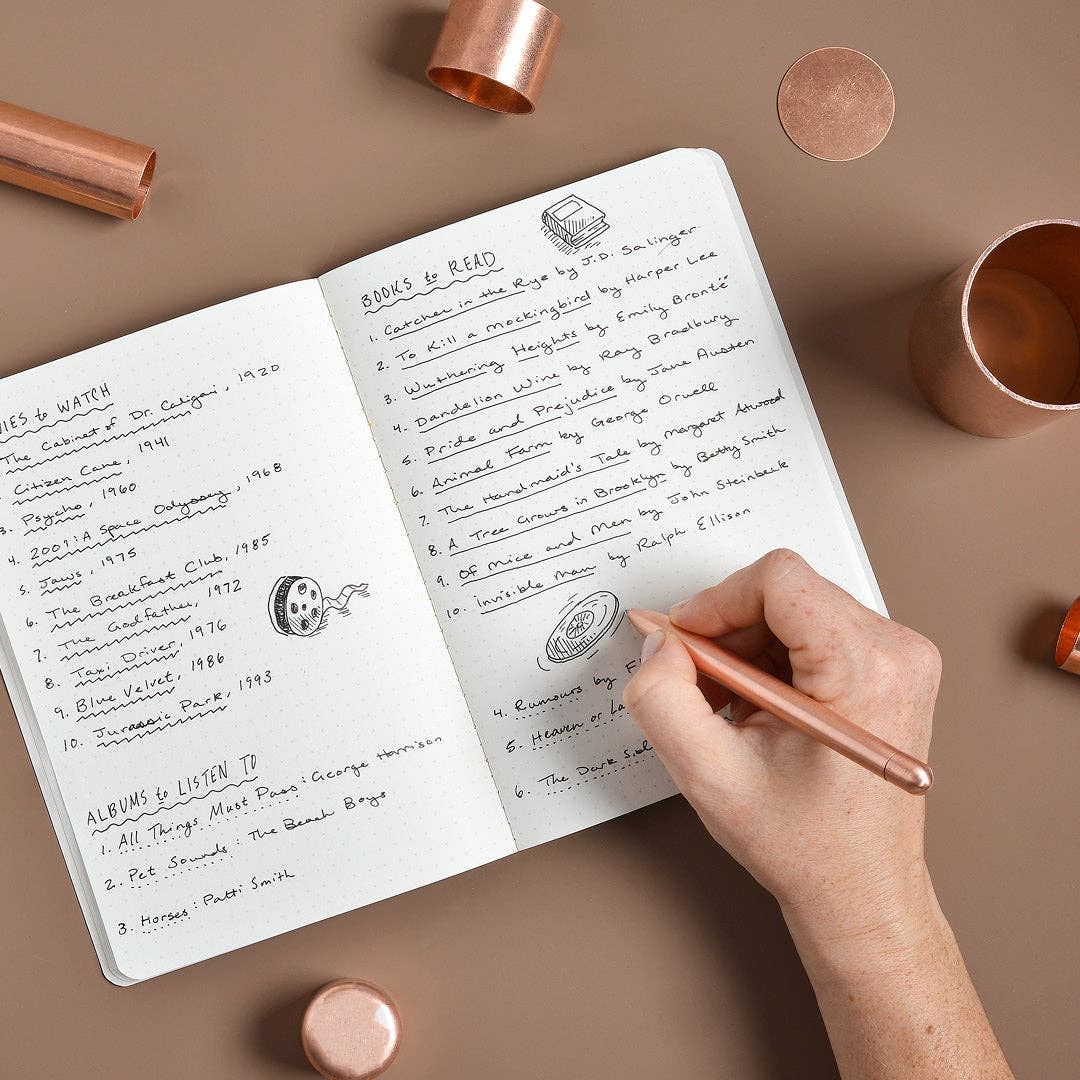 IES to WATCH
The Cabinet of Dr. Caligari, 1920
Citizen Cane, 1941
3. Psycho, 1960
4. 2001: A Space Odyssey, 1968
5. Jaws, 1975
6. The Breakfast Club, 1985
7. The Godfather, 1972
8. Taxi Driver, 1976
9. Blue Velvet, 1986
10. Jurassic Park, 1993
ALBUMS to LISTEN TO
1. All Things Must Pass: George Harrison
2. Pet Sounds: The Beach Boys
3. Horses: Patti Smith
BOOKS to READ
1. Catcher in the Rye by J.D. Salinger
2. To Kill a Mockingbird by Harper Lee
3. Wuthering Heights by Emily Brontë
4. Dandelion Wine by Ray Bradbury
5. Pride and Prejudice by Jane Austen
6. Animal Farm by George Orwell
7. The Handmaid's Tale by Margaret Atwood
8. A Tree Grows in Brooklyn by Betty Smith
9. Of Mice and Men by John Steinbeck
10. Invisible Man by Ralph Ellison
4. Rumours by Fl
5. Heaven or La
6. The Dark Sid